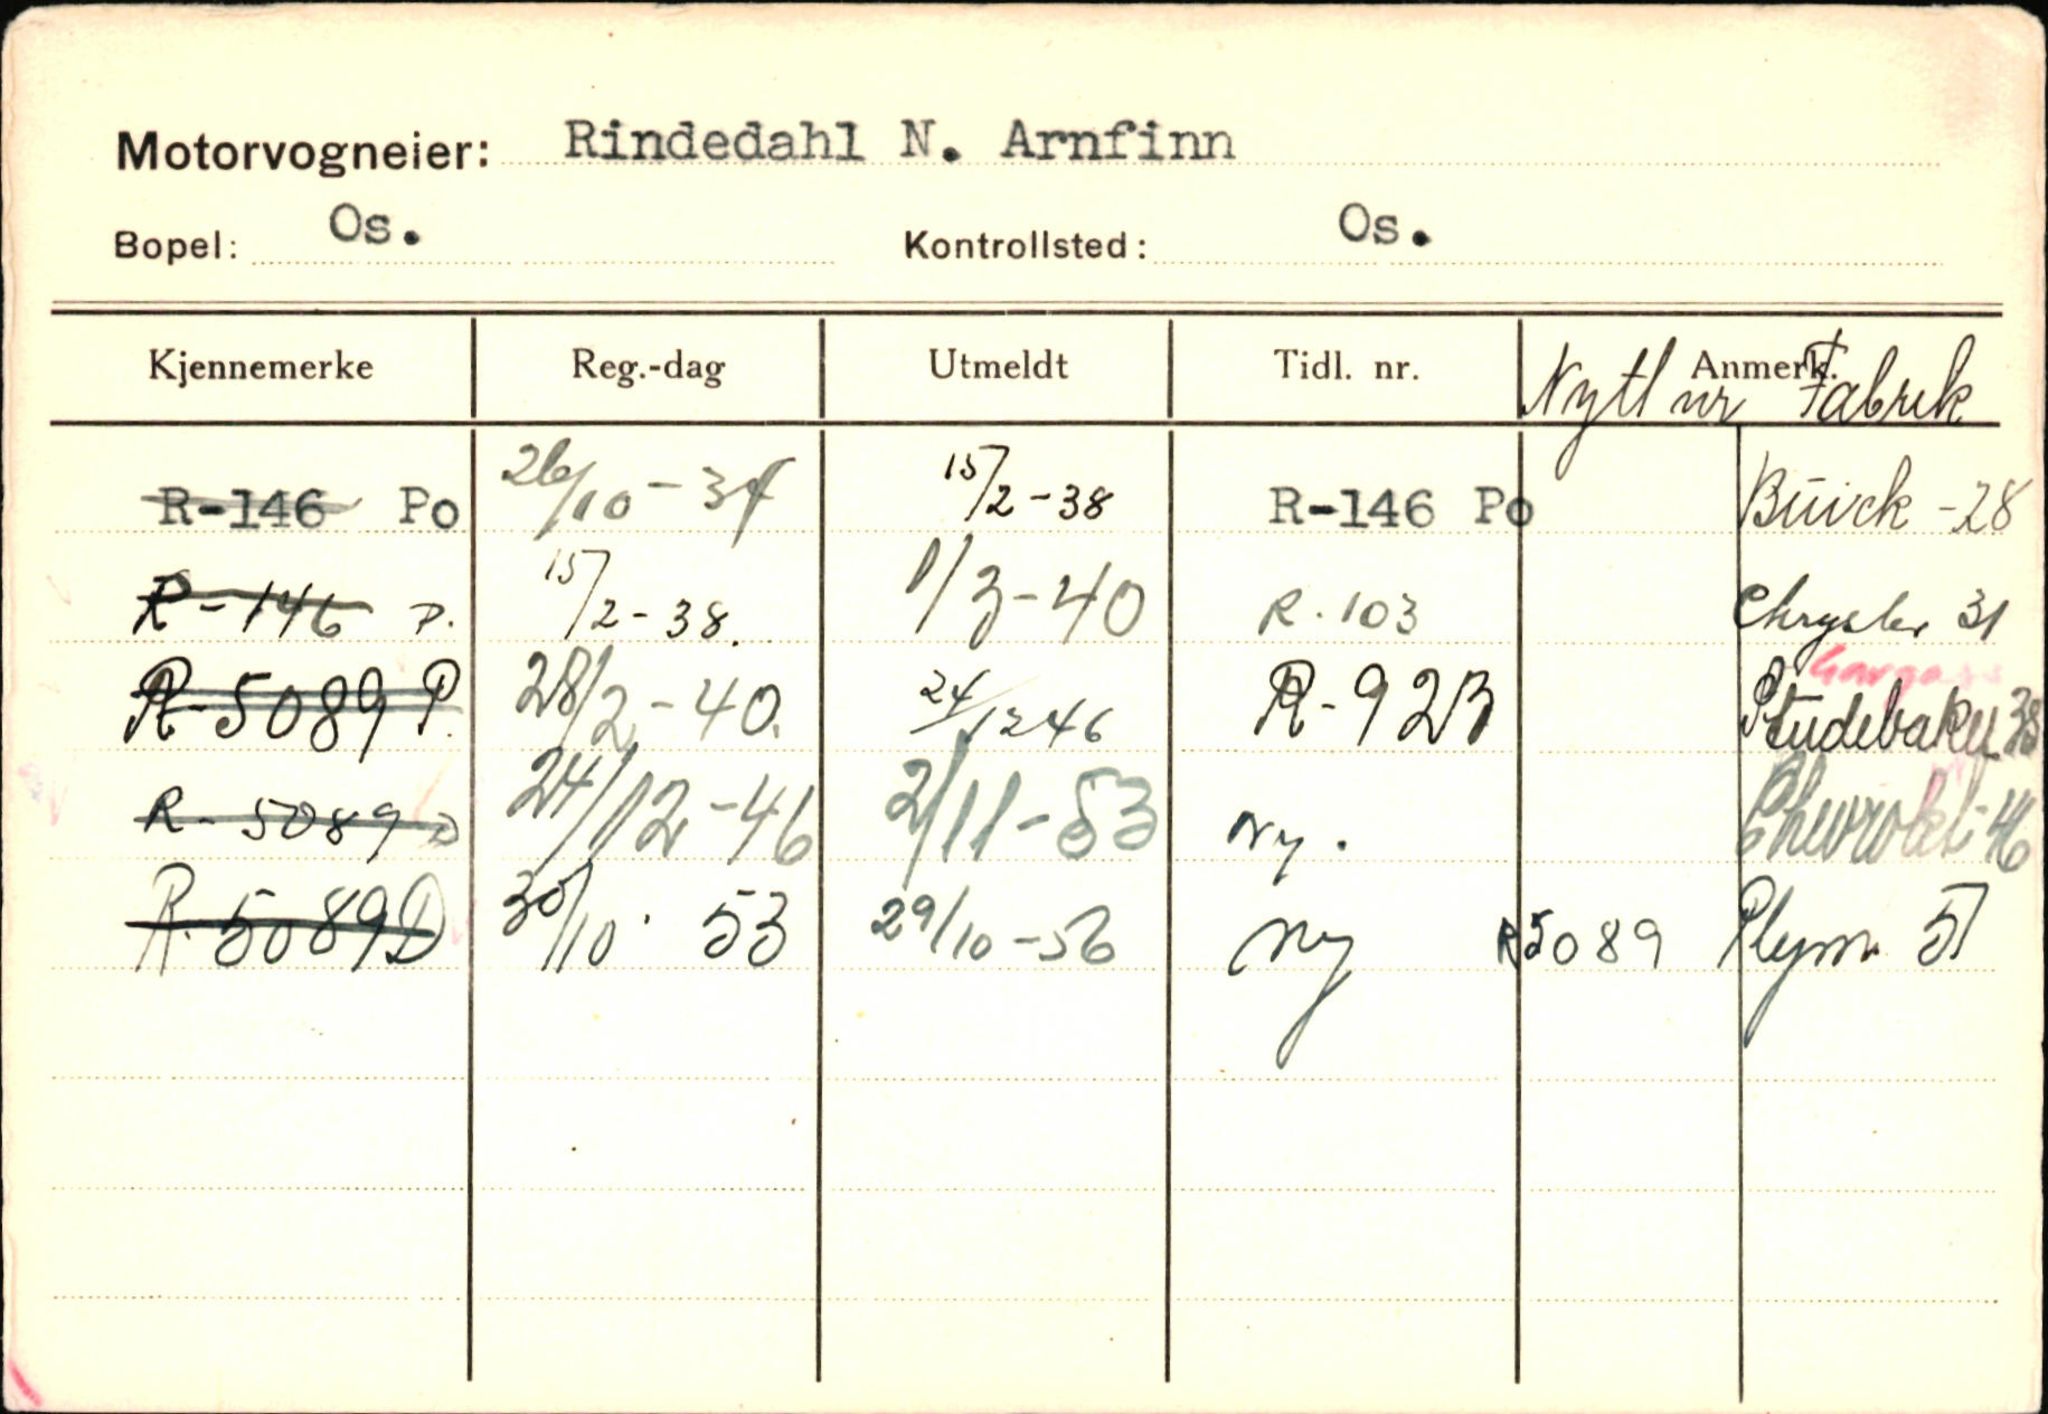 Motorvogneier: Rindedahl N. Arnfinn
Bopel: Os. Kontrollsted: Os.
Kjennemerke Reg.-dag Utmeldt Tidl. nr. Anmerk.
Nytt nr Fabrik
R-146 Po 26/10-34 15/2-38 R-146 Po Buick -28
R-146 P. 15/2-38. 1/3-40 R.103 Chrysler 31
Gargass
R-5089 P. 28/2-40. 24/12 46 R-923 Studebaker 38
R-5089 D 24/12-46 2/11-53 ny. Chevrolet-46
R.5089D 30/10. 53 29/10-56 ny R5089 Plym. 51